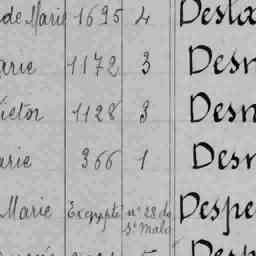 de Marie 1695 4 Desla
arie 1172 3 Desn
Victor 1128 3 Desn
arie 366 1 Desn
Marie Exempté nº 28 de Despe
St Malo